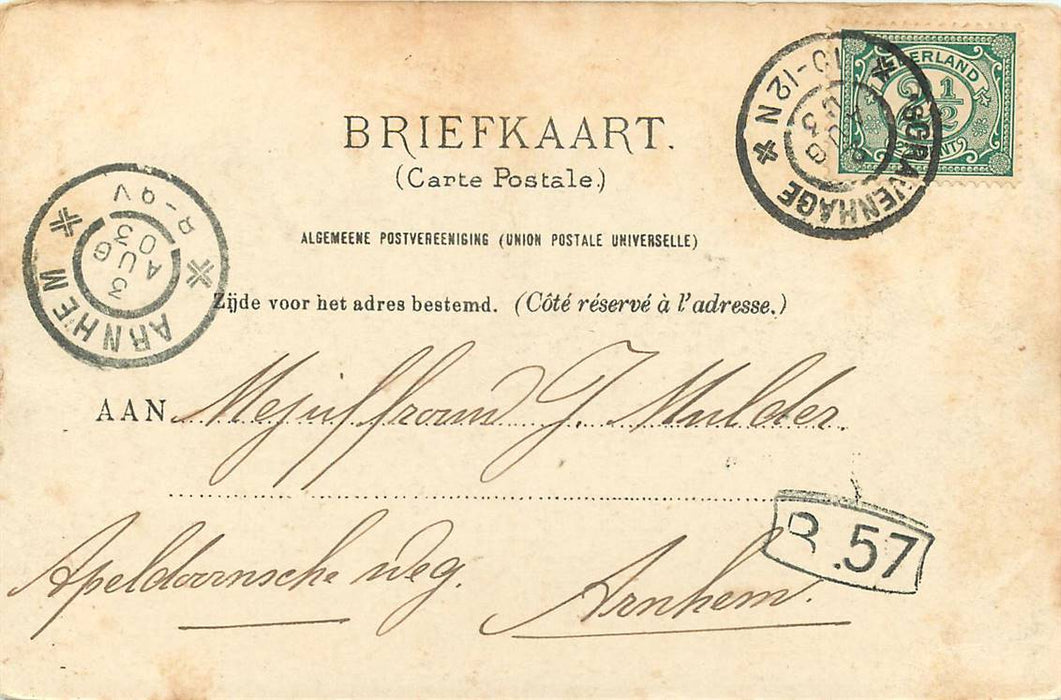 BRIEFKAART.
(Carte Postale.)
ALGEMEENE POSTVEREENIGING (UNION POSTALE UNIVERSELLE)
Zijde voor het adres bestemd. (Côté réservé à l'adresse.)
AAN Mejuffrouw J. Mulder.
Apeldoornsche weg.
Arnhem.
NEDERLAND
2½
CENT
'SGRAVENHAGE
10-12N
AUG
ARNHEM
8-9V
3
AUG
03
.57